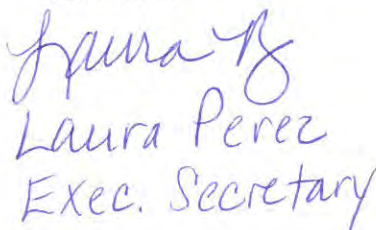 Laura P
Laura Perez
Exec. Secretary